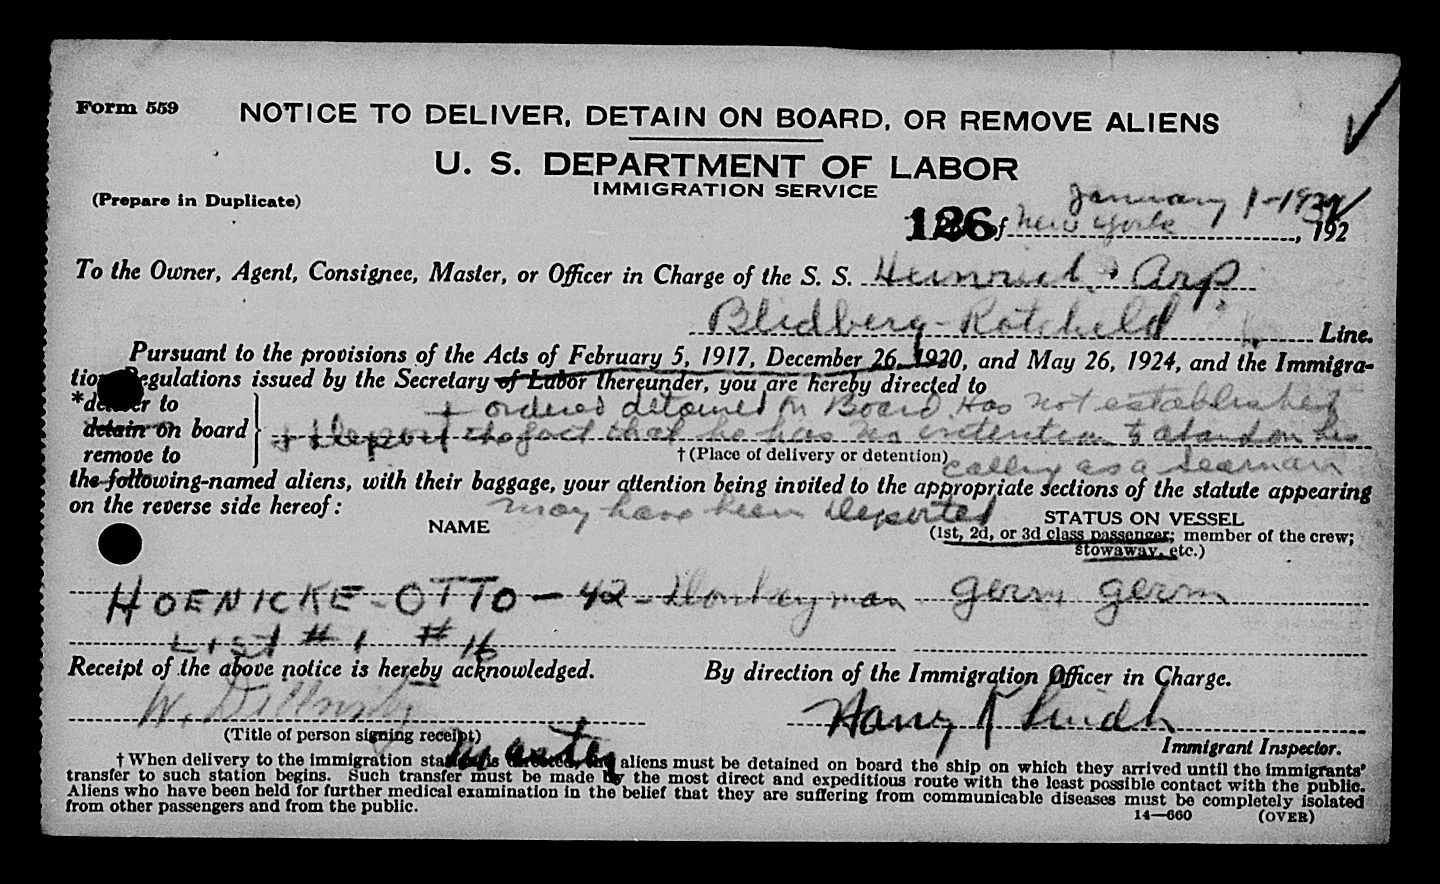 Form 559
NOTICE TO DELIVER, DETAIN ON BOARD, OR REMOVE ALIENS
U. S. DEPARTMENT OF LABOR
IMMIGRATION SERVICE
(Prepare in Duplicate)
January 1-
126 of New York, 192
To the Owner, Agent, Consignee, Master, or Officer in Charge of the S. S. Heinrich Arp
Blidberg-Rotchild Line.
Pursuant to the provisions of the Acts of February 5, 1917, December 26, 1920, and May 26, 1924, and the Immigra-
tion Regulations issued by the Secretary of Labor thereunder, you are hereby directed to
*deliver to
detain on board
remove to
+ ordered detained on Board Has not established
+ Deport the fact that he has no intention to abandon his
† (Place of delivery or detention)
calling as a seaman
the following-named aliens, with their baggage, your attention being invited to the appropriate sections of the statute appearing
on the reverse side hereof:
may have been Deported
NAME
STATUS ON VESSEL
(1st, 2d, or 3d class passenger; member of the crew;
stowaway, etc.)
HOENICKE-OTTO-42-Donkeyman Germ Germ
LIST #1 #16
Receipt of the above notice is hereby acknowledged.
By direction of the Immigration Officer in Charge.
W.
Harry R
(Title of person signing receipt)
master
Immigrant Inspector.
† When delivery to the immigration station is directed, the aliens must be detained on board the ship on which they arrived until the immigrants'
transfer to such station begins. Such transfer must be made by the most direct and expeditious route with the least possible contact with the public.
Aliens who have been held for further medical examination in the belief that they are suffering from communicable diseases must be completely isolated
from other passengers and from the public.
14—660
(OVER)